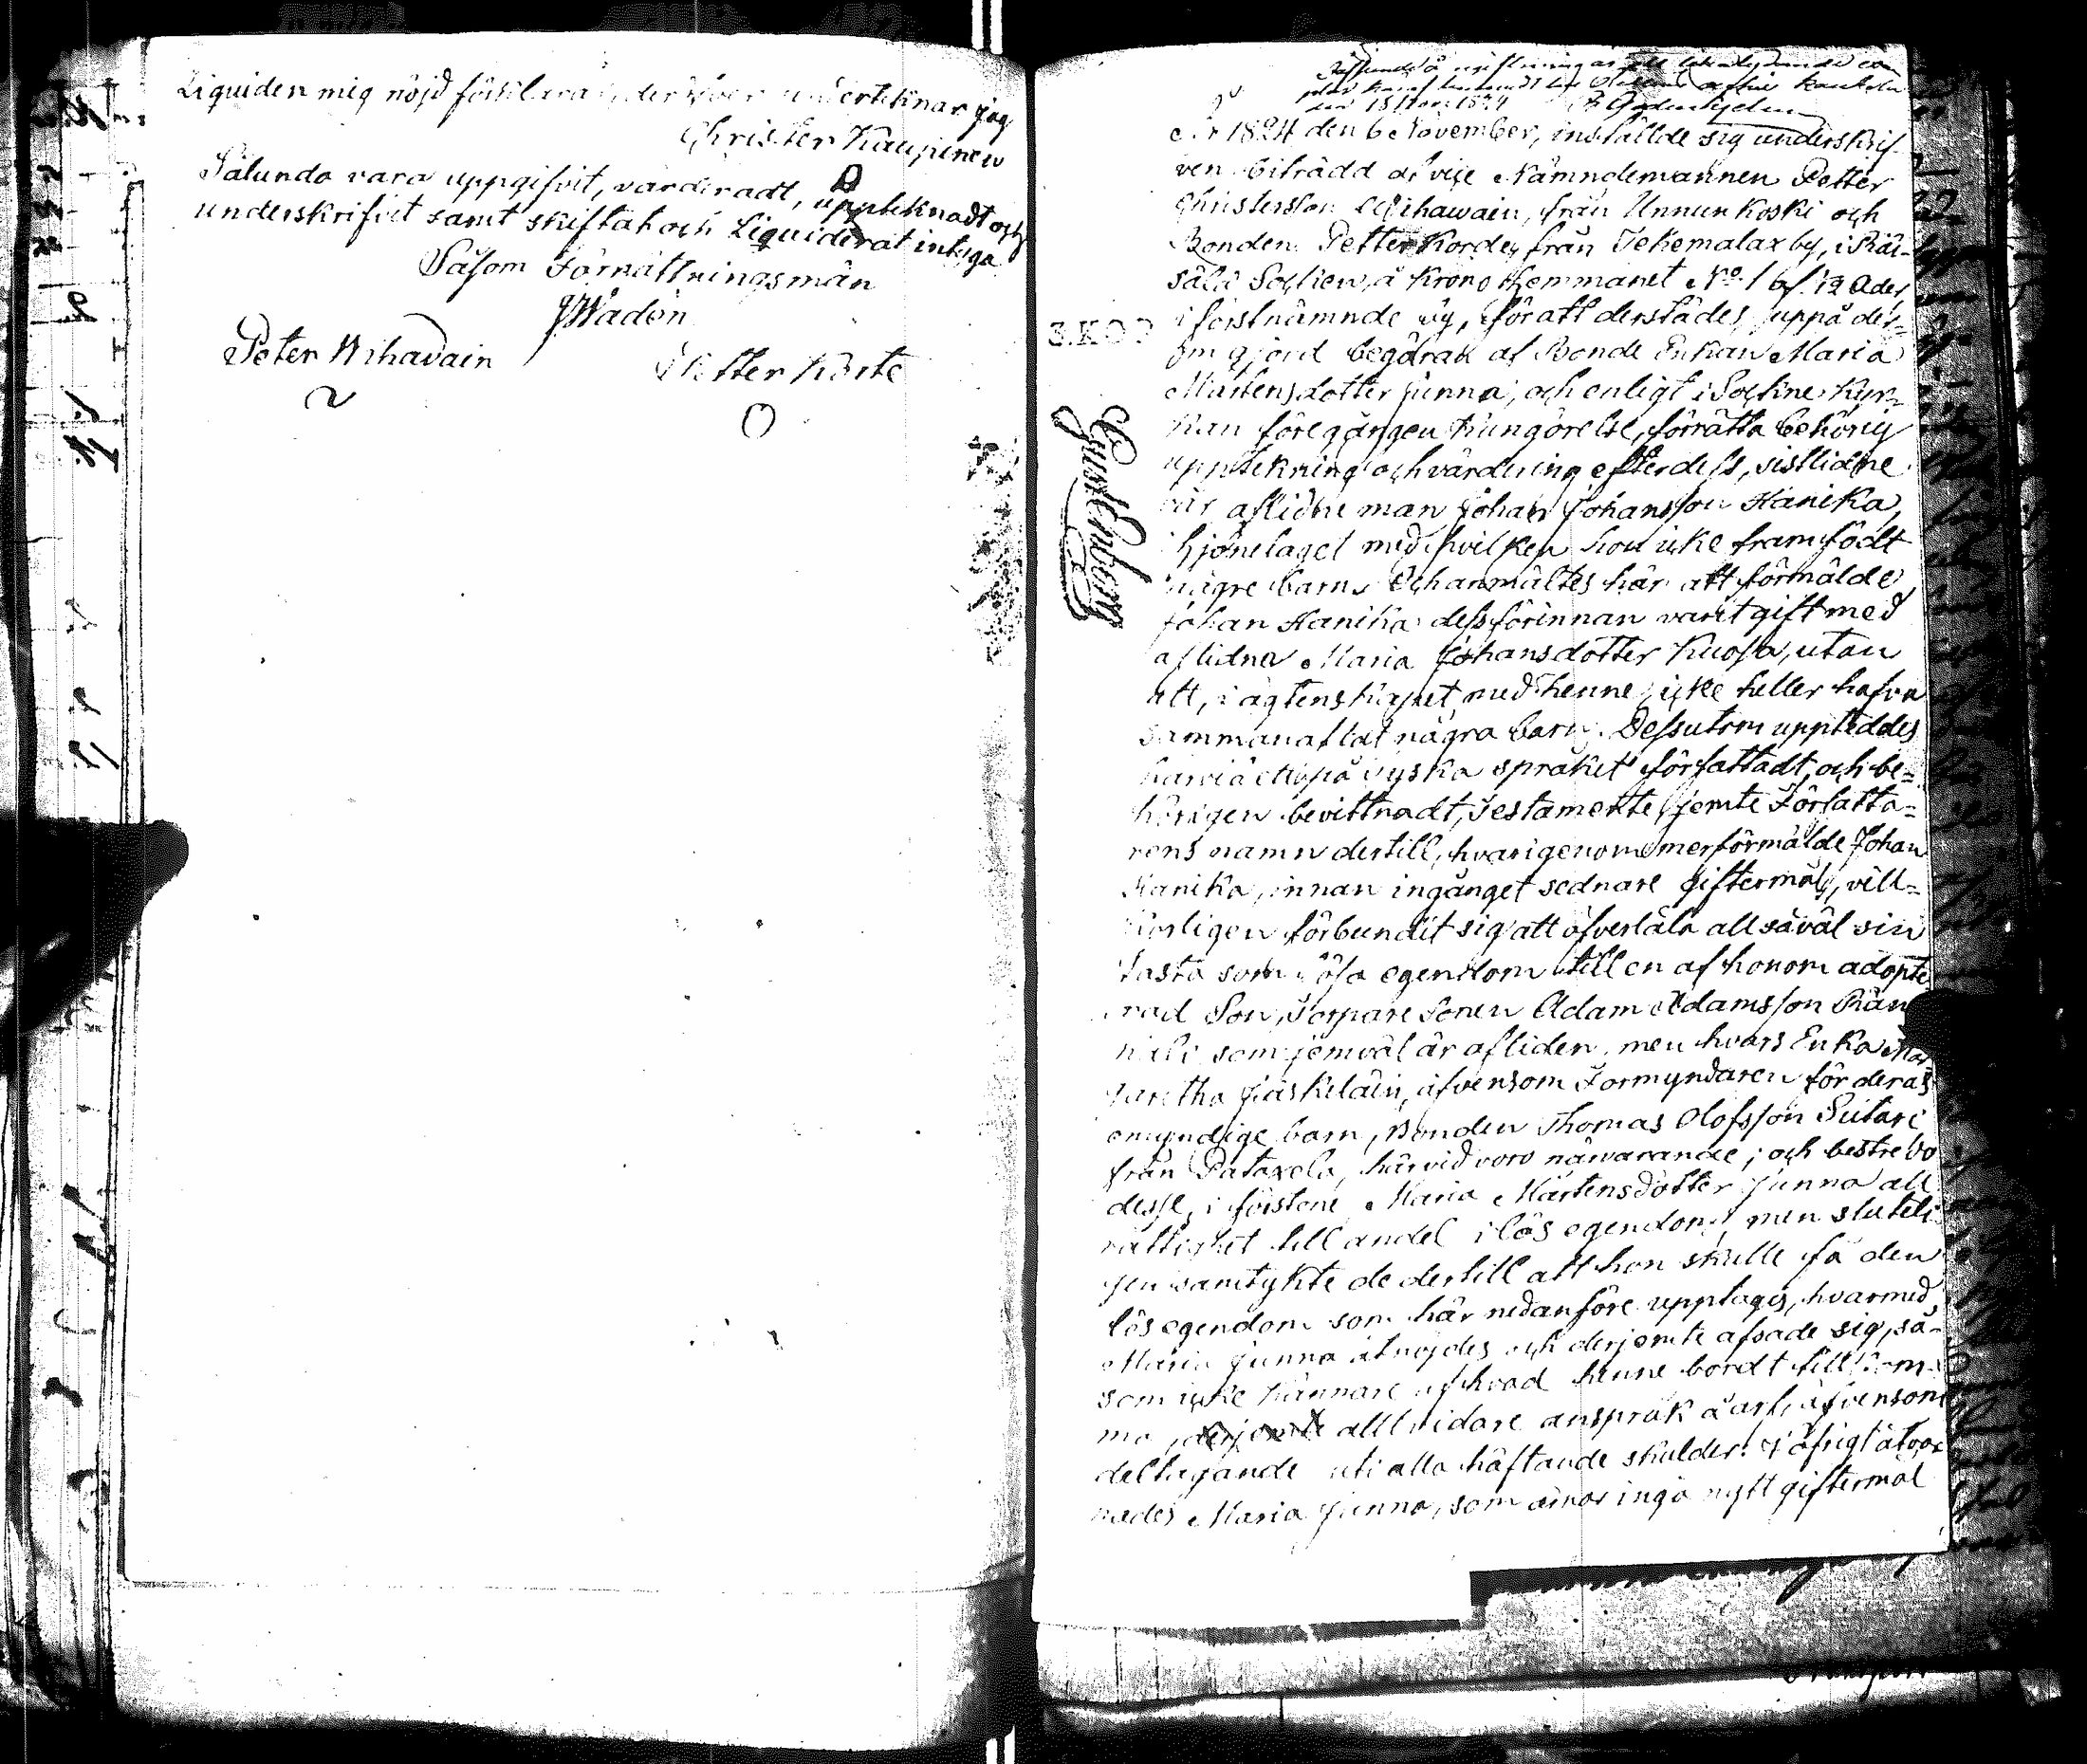 Liquiden mig nöjd förklarar, undertecknar jag
Christer Kaupinen
Sålunda vara uppgifvit, värderadt, uppteknadt och
underskrifvit samt skiftat och Liquiderat intyga
Såsom Förrättningsmän
JWadén
Peter Wihavain
Petter Korte
den 13 1824
År 1824 den 6 November, inställde sig underskrif-
ven biträdd af vice Nämndemannen Petter
Christersson Wihawain, från Unnunkoski och
Bonden Petter Korde, från Tekemalax by, i Rää-
Sochen, å Krono Hemmanet No. 1 af
i förstnämnde by, för att derstädes, uppå der-
om gjord begäran af Bonde Enkan Maria
Mårtensdotter Junna, och enligt i Sockne Kyr-
kan föregången kungörelse, förrätta behörig
uppteckning och värdering efter dess, sistlidne
år aflidne man Johan Johansson Hanika,
i hjonelaget med hvilken hon icke framfödt
några barn. Och anmältes här att förmälde
Johan Hanika dessförinnan varit gift med
aflidna Maria Johansdotter Kuosa, utan
att, i ägtenskapet med henne, icke heller hafva
sammanaflat några barn. Dessutom uppteddes
härvid ett på ryska språket författadt, och be-
hörigen bevittnadt, Testamente, jemte Författa-
rens namn dertill, hvarigenom merförmälde Johan
Hanika, innan ingånget sednare giftermål, vill-
korligen förbundit sig att öfverlåta all såväl sin
fasta som lösa egendom till en af honom adopte-
rad Son, Torpare Sonen Adam Adamsson
som jemväl är afliden, men hvars Enka Mar-
garetha Jäskeläin, äfvensom Formyndaren för deras
omyndige barn, Bonden Thomas Olofsson Suitari
från Pataxela, härvid voro närvarande; och bestredo
desse, i förstone Maria Mårtensdotter Junna all
rättighet till andel i lös egendom, men slutli-
gen samtykte de dertill att hon skulle få den
lös egendom som här nedanföre upptages, hvarmed
Maria Junna åtnöjdes och derjemte afsade sig, så-
som icke kännare af hvad henne bordt tillkom-
ma, derjemte allt vidare anspråk å arf, äfvensom
deltagande uti alla häftande skulder. I öfrigt
Maria Junna, som ärnar ingå nytt giftermål
Gust Enborg